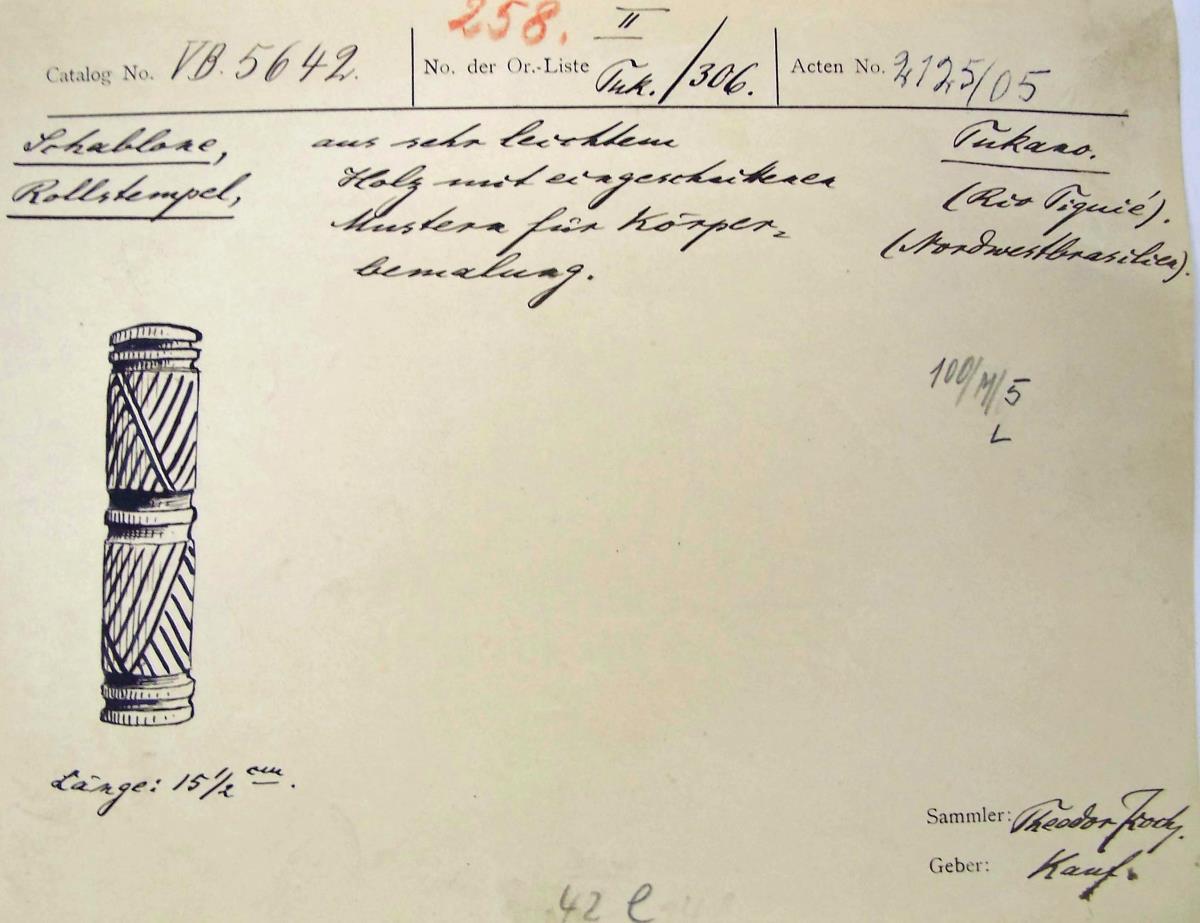 258. II
Catalog No. VB. 5642. No. der Or.-Liste Tuk./306. Acten No. 2125/05
Schablone, aus sehr leichtem Tukano.
Rollstempel, Holz mit eingeschnittenen (Rio Tiquié).
Mustern für Körper- (Nordwestbrasilien).
bemalung.
100/M/5
L
Länge: 15½ cm.
Sammler: Theodor Koch.
Geber: Kauf.
42 e